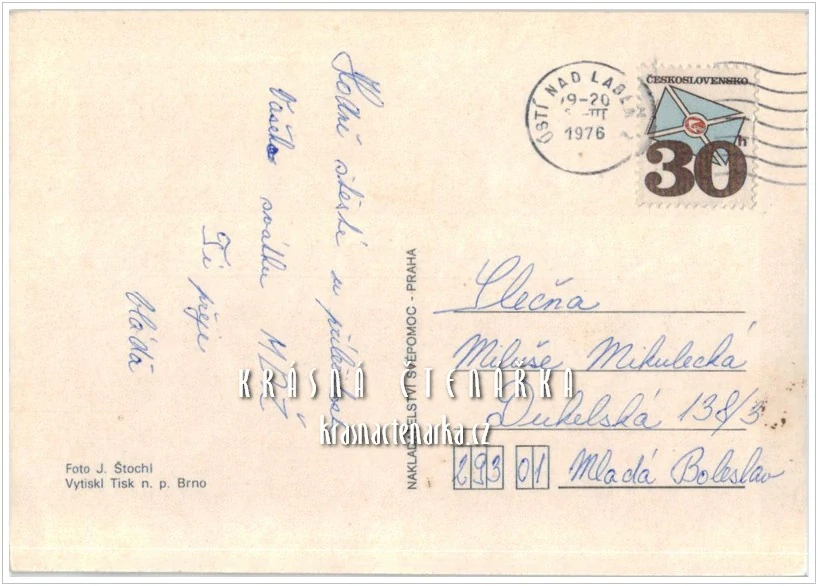 Hodně štěstí u příležitosti
Vašeho svátku MDŽ
Ti přeje
Vláďa
Foto J. Štochl
Vytiskl Tisk n. p. Brno
NAKLADATELSTVÍ SVÉPOMOC - PRAHA
ÚSTÍ NAD LABEM 2
9-20
III
1976
ČESKOSLOVENSKO
30h
Slečna
Miluše Mikulecká
Dukelská 138/3
293 01 Mladá Boleslav
KRÁSNÁ ČTENÁRKA
krasnactenarka.cz